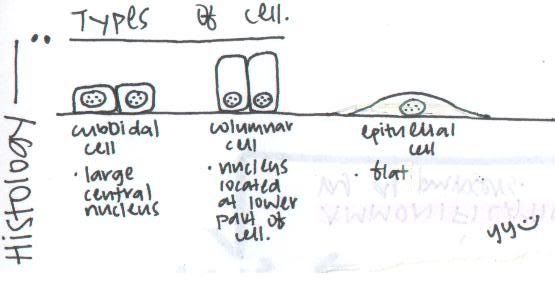 Types of cell.
Histology
cuboidal
cell
• large
central
nucleus
columnar
cell
• nucleus
located
at lower
part of
cell.
epithelial
cell
• flat
yy